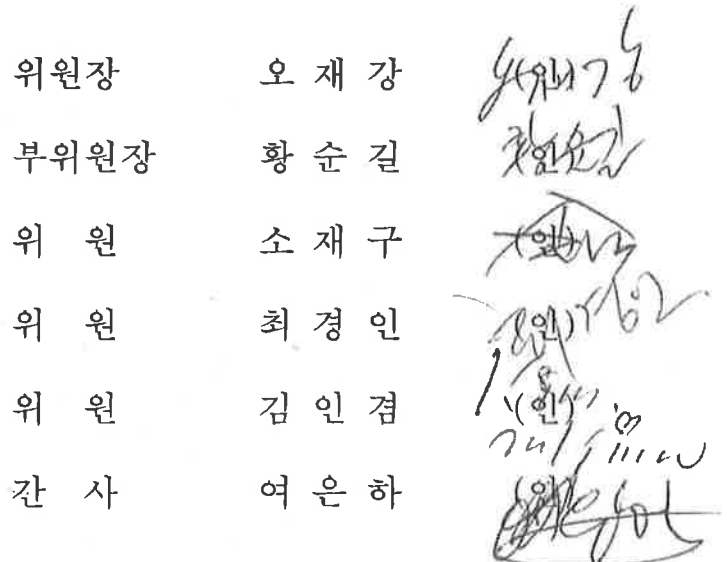 위원장 오 재 강 (인)
부위원장 황 순 길 (인)
위 원 소 재 구 (인)
위 원 최 경 인 (인)
위 원 김 인 겸 (인)
간 사 여 은 하 (인)